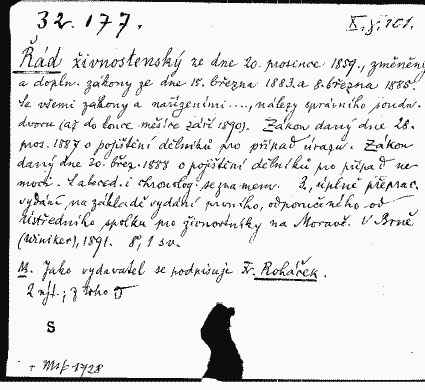 32.177.
Řád živnostenský ze dne 20. prosince 1859., změněný
a dopln. zákony ze dne 15. března 1883. a 8. března 1885
Se všemi zákony a nařízeními...., nálezy správního soudn.
dvoru (až do konce měsíce září 1890). Zákon daný dne 28.
pros. 1887 o pojištění dělníků pro případ úrazu. Zákon
daný dne 30. břez. 1888 o pojištění dělníků pro případ ne-
moci. S abeced. i chronolog. seznamem. 2., úplně přeprac.
vydání na základě vydání prvního, odporučeného od
ústředního spolku pro živnostníky na Moravě. V Brně
(Winiker), 1891. 8°, 1 sv.
M. Jako vydavatel se podpisuje Fr. Roháček.
S